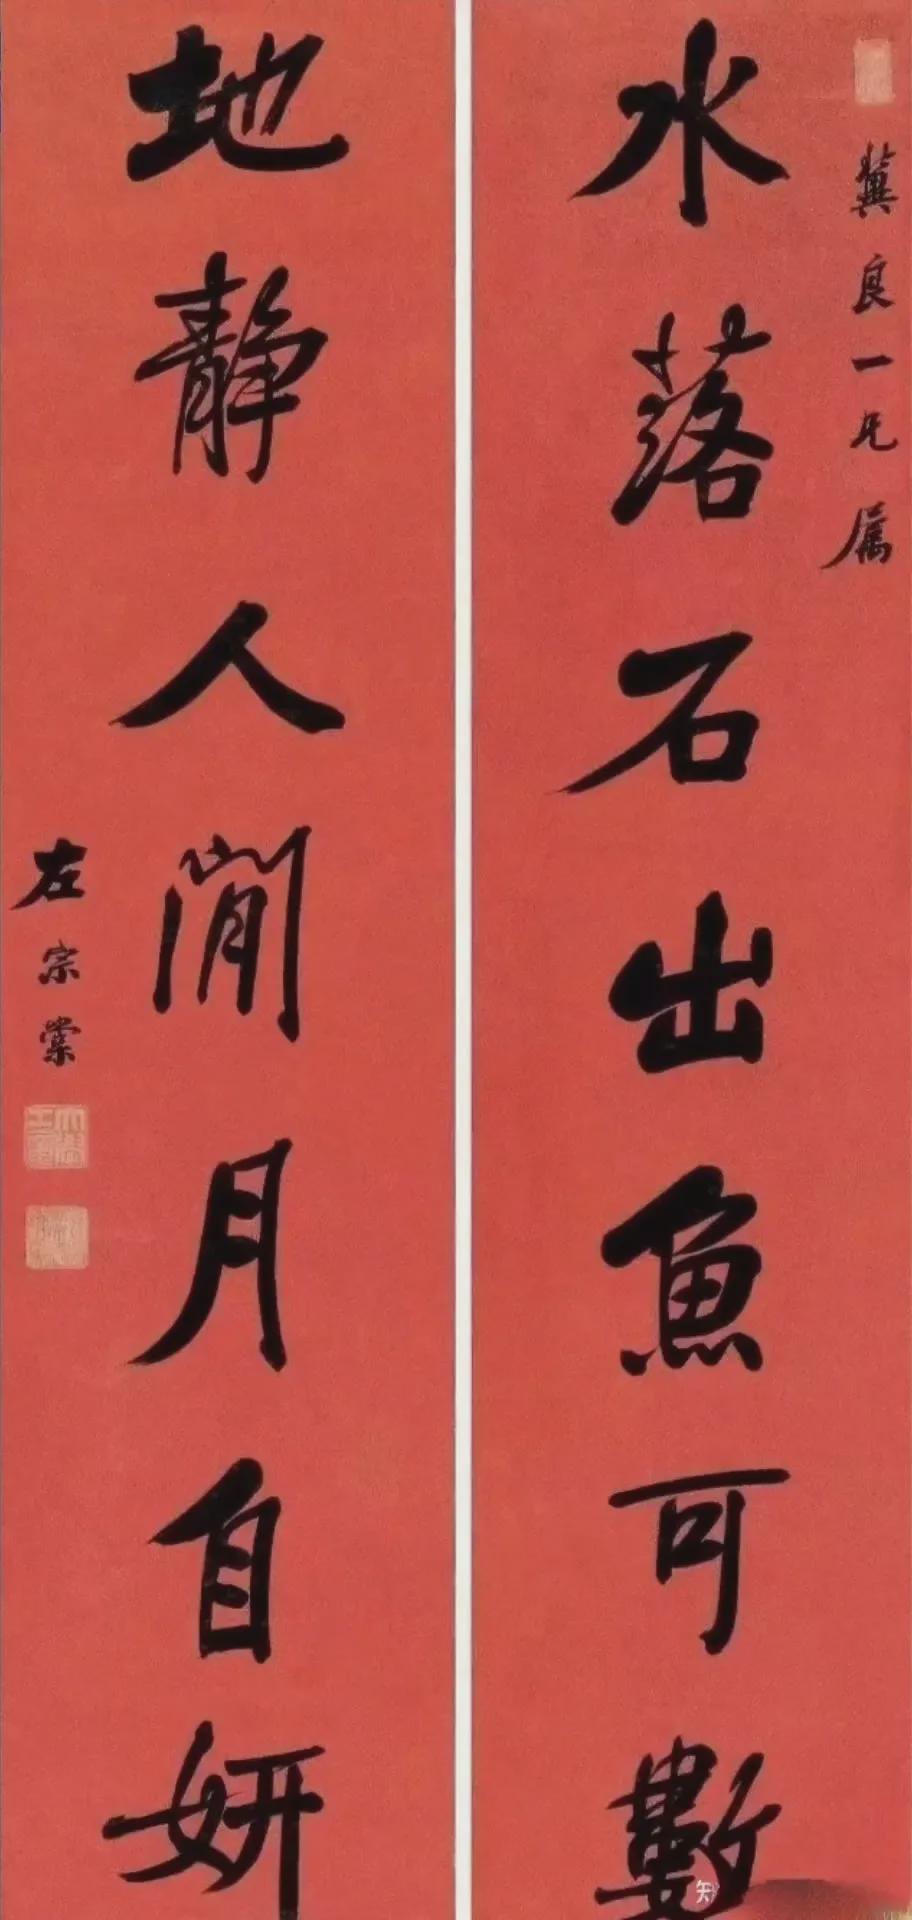 冀良一兄属
水落石出魚可數
地靜人閒月自妍
左宗棠
知